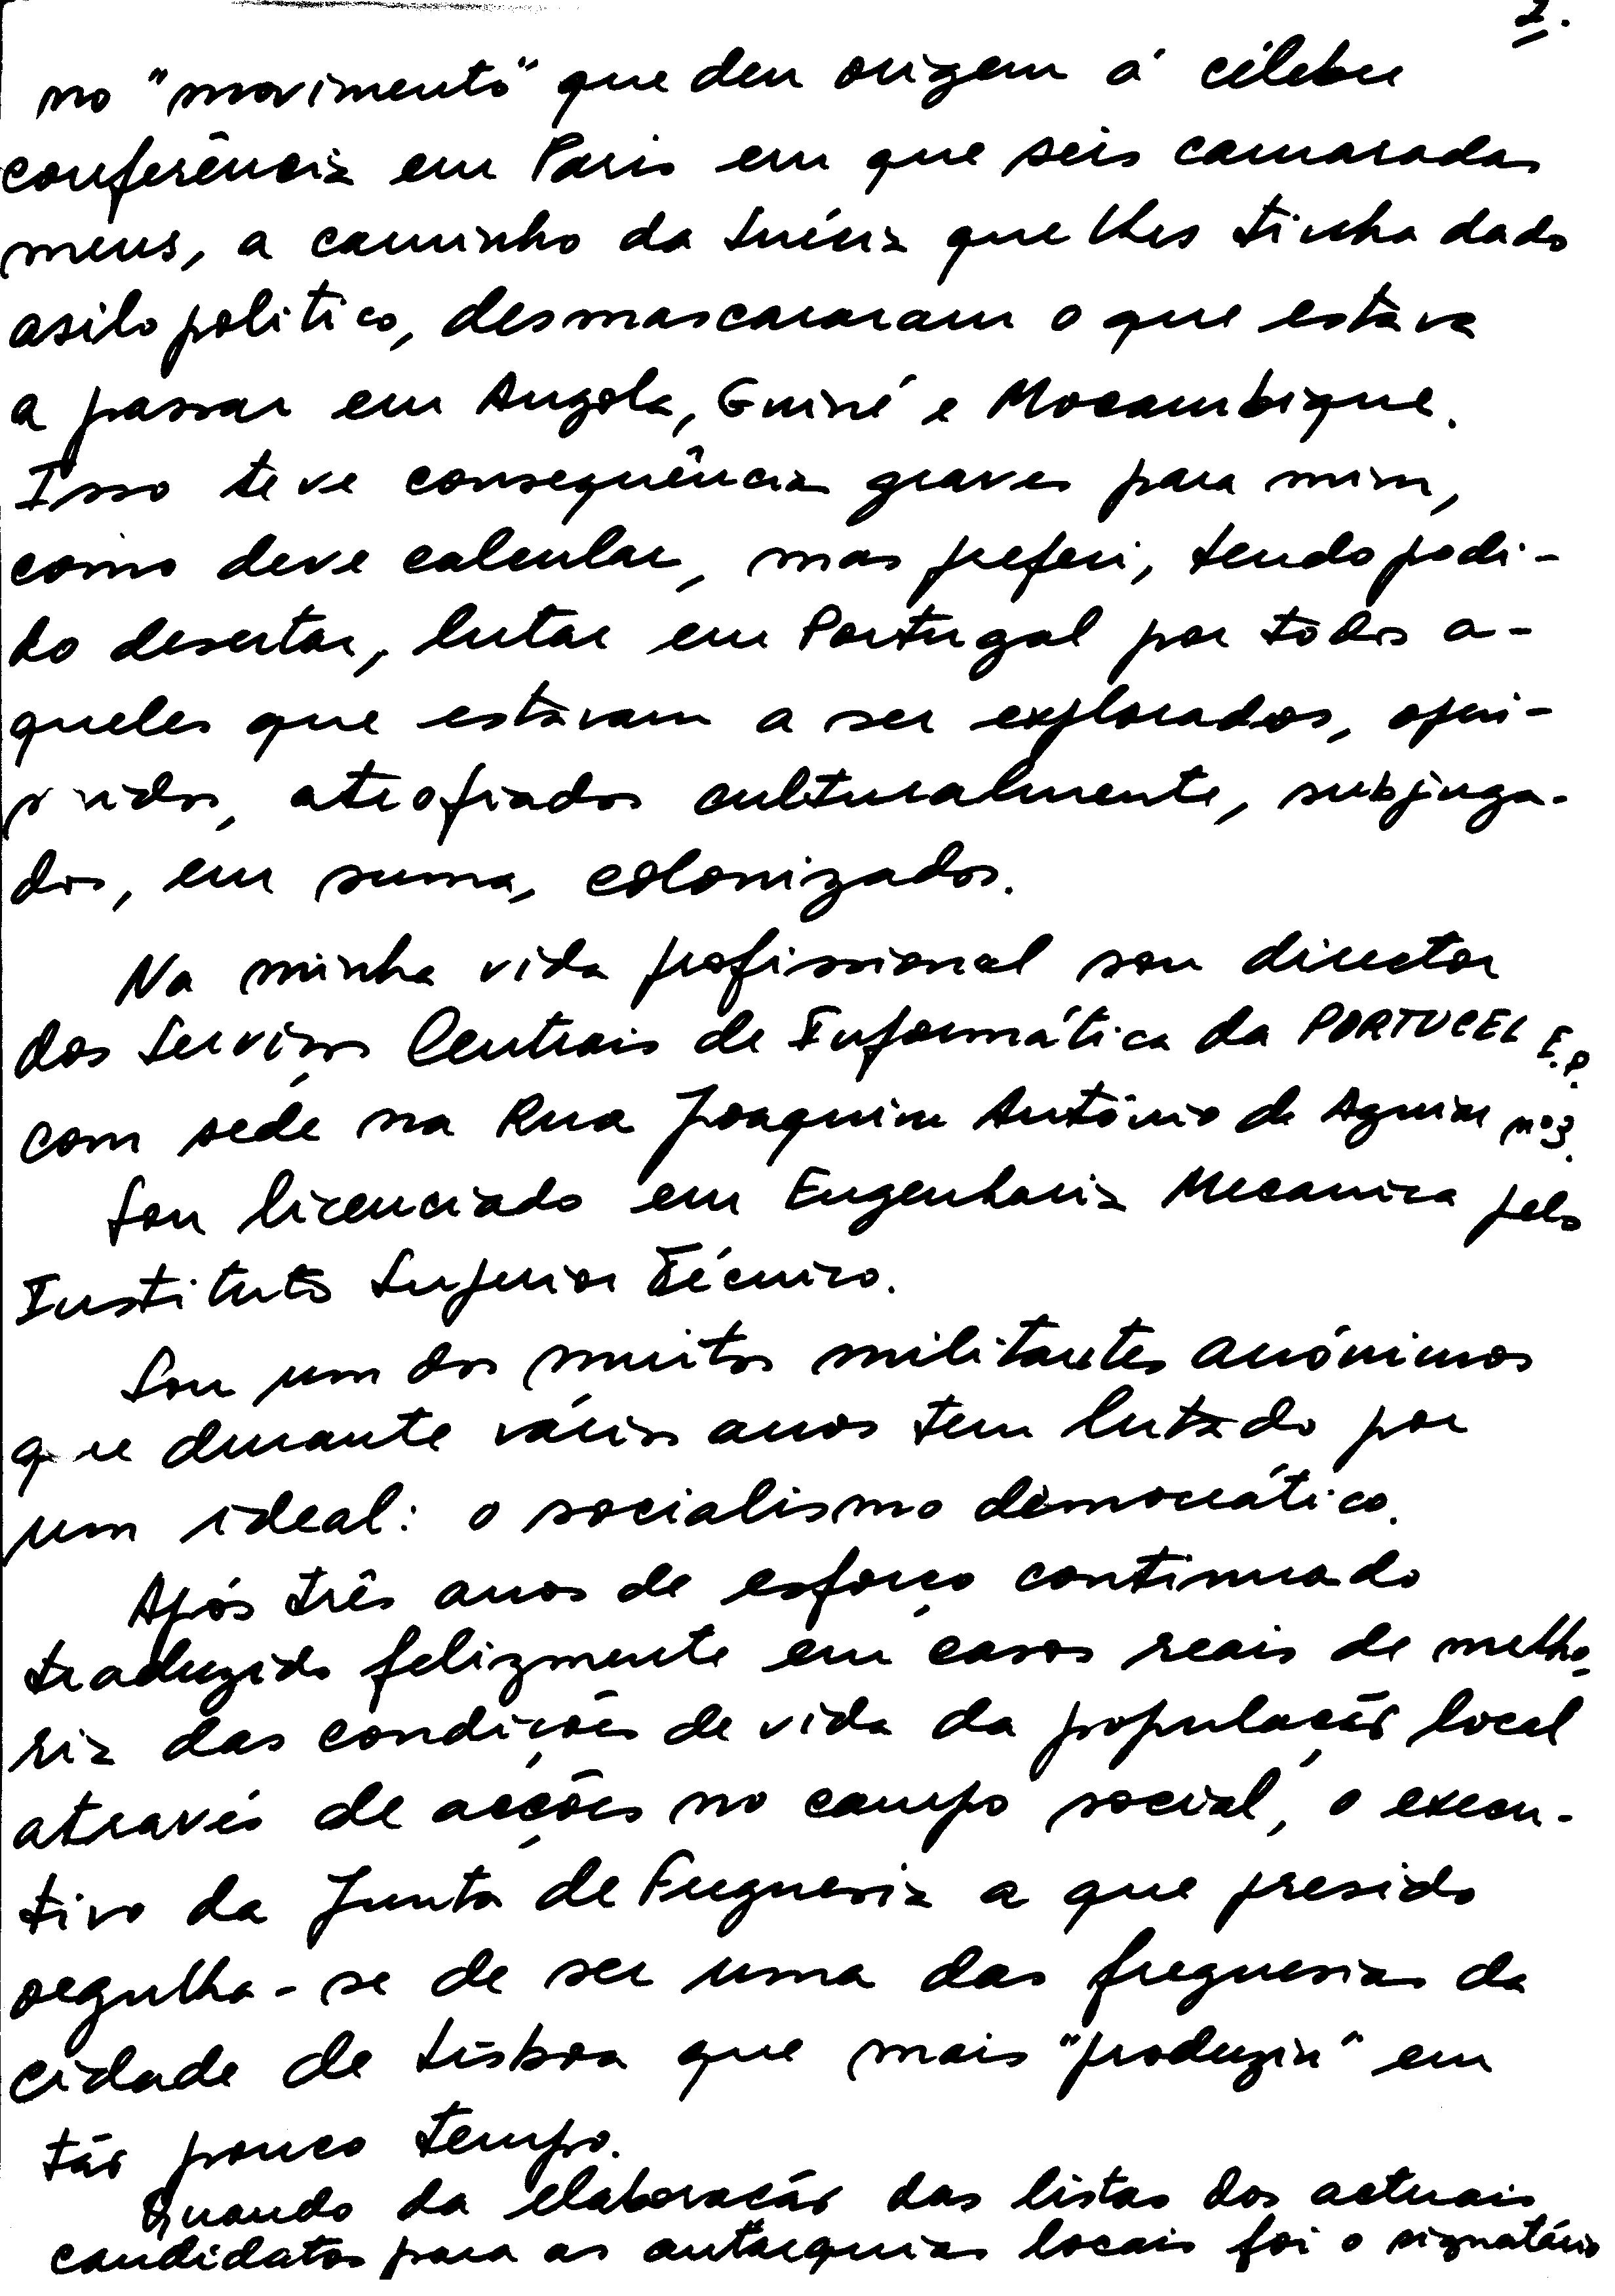 2.
no "movimento" que deu origem á célebre
conferência em Paris em que seis camaradas
meus, a caminho da Suécia que lhes tinha dado
asilo politico, desmascararam o que estava
a passar em Angola, Guiné e Moçambique.
Isso teve consequências graves para mim,
como deve calcular, mas preferi, tendo podi-
do desertar, lutar em Portugal por todos a-
queles que estavam a ser explorados, opri-
midos, atrofiados culturalmente, subjuga-
dos, em suma, colonizados.
Na minha vida profissional sou director
dos Serviços Centrais de Informática da PORTUCEL E.P.
com sede na Rua Joaquim António de Aguiar nº 3.
Sou licenciado em Engenharia Mecanica pelo
Instituto Superior Técnico.
Sou um dos muitos militantes anónimos
que durante vários anos tem lutado por
um ideal: o socialismo democrático.
Após três anos de esforço continuado
traduzido felizmente em casos reais de melho-
ria das condições de vida da população local
através de acções no campo social, o execu-
tivo da Junta de Freguesia a que presido
orgulha-se de ser uma das freguesias da
cidade de Lisboa que mais "produziu" em
tão pouco tempo.
Quando da elaboração das listas dos actuais
candidatos para as autarquias locais foi o signatário